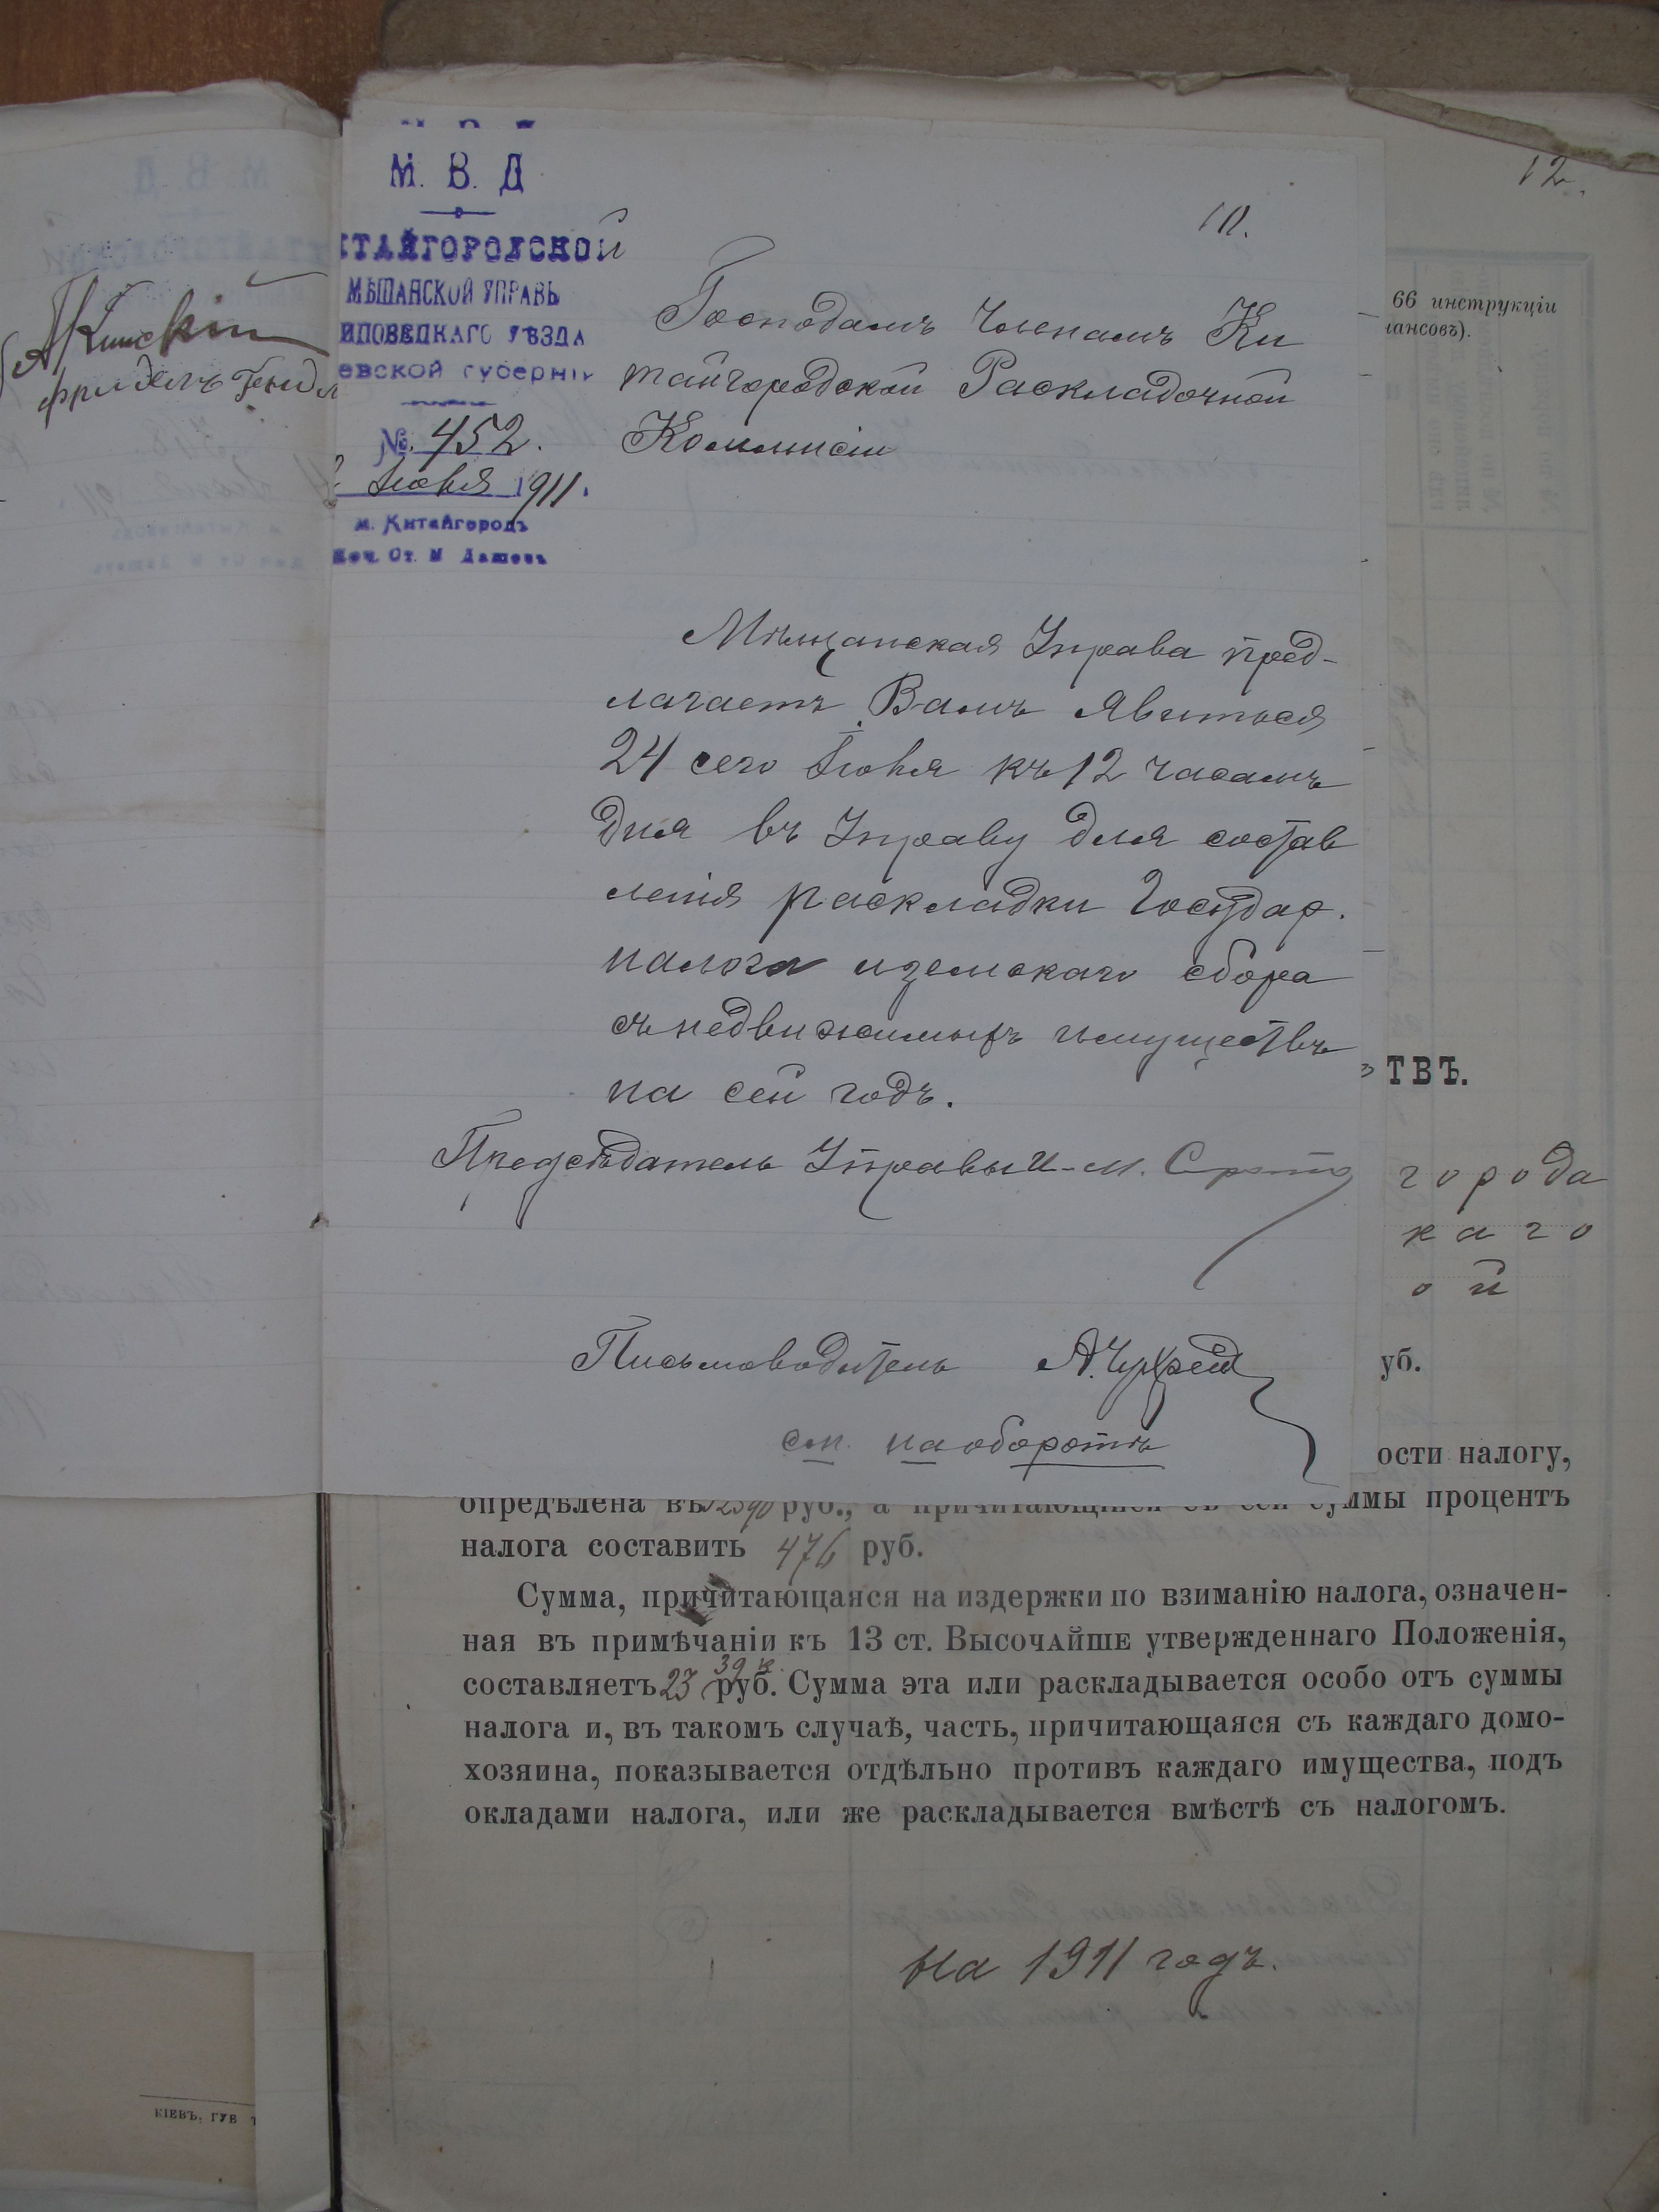 М. В. Д
ТАЙГОРОДСКОЙ
МѢЩАНСКОЙ УПРАВЪ
ИПОВЕЦКАГО УѢЗДА
евской губерніи
№ 452.
Іюня 1911.
м. Китайгородъ
Поч. Ст. М Дашевъ
10.
Господамъ Членамъ Ки
тайгородской Раскладочной
Коммисіи
Мѣщанская Управа пред-
лагаетъ Вамъ явиться
24 сего Іюня къ 12 часамъ
дня въ Управу для состав
ленія раскладки Государ.
налога и земскаго сбора
съ недвижимыхъ имуществъ
на сей годъ.
Предсѣдатель Управы
Письмоводитель
см. на оборотѣ
12.
66 инструкціи
ансовъ).
ТВЪ.
города
каго
ой
уб.
ости налогу,
опредѣлена въ руб., а причитающійся съ сей суммы процентъ
налога составить 476 руб.
Сумма, причитающаяся на издержки по взиманію налога, означен-
ная въ примѣчаніи къ 13 ст. Высочайше утвержденнаго Положенія,
составляетъ 23 руб. 39 к. Сумма эта или раскладывается особо отъ суммы
налога и, въ такомъ случаѣ, часть, причитающаяся съ каждаго домо-
хозяина, показывается отдѣльно противъ каждаго имущества, подъ
окладами налога, или же раскладывается вмѣстѣ съ налогомъ.
на 1911 годъ.
КІЕВЪ, ГУБ